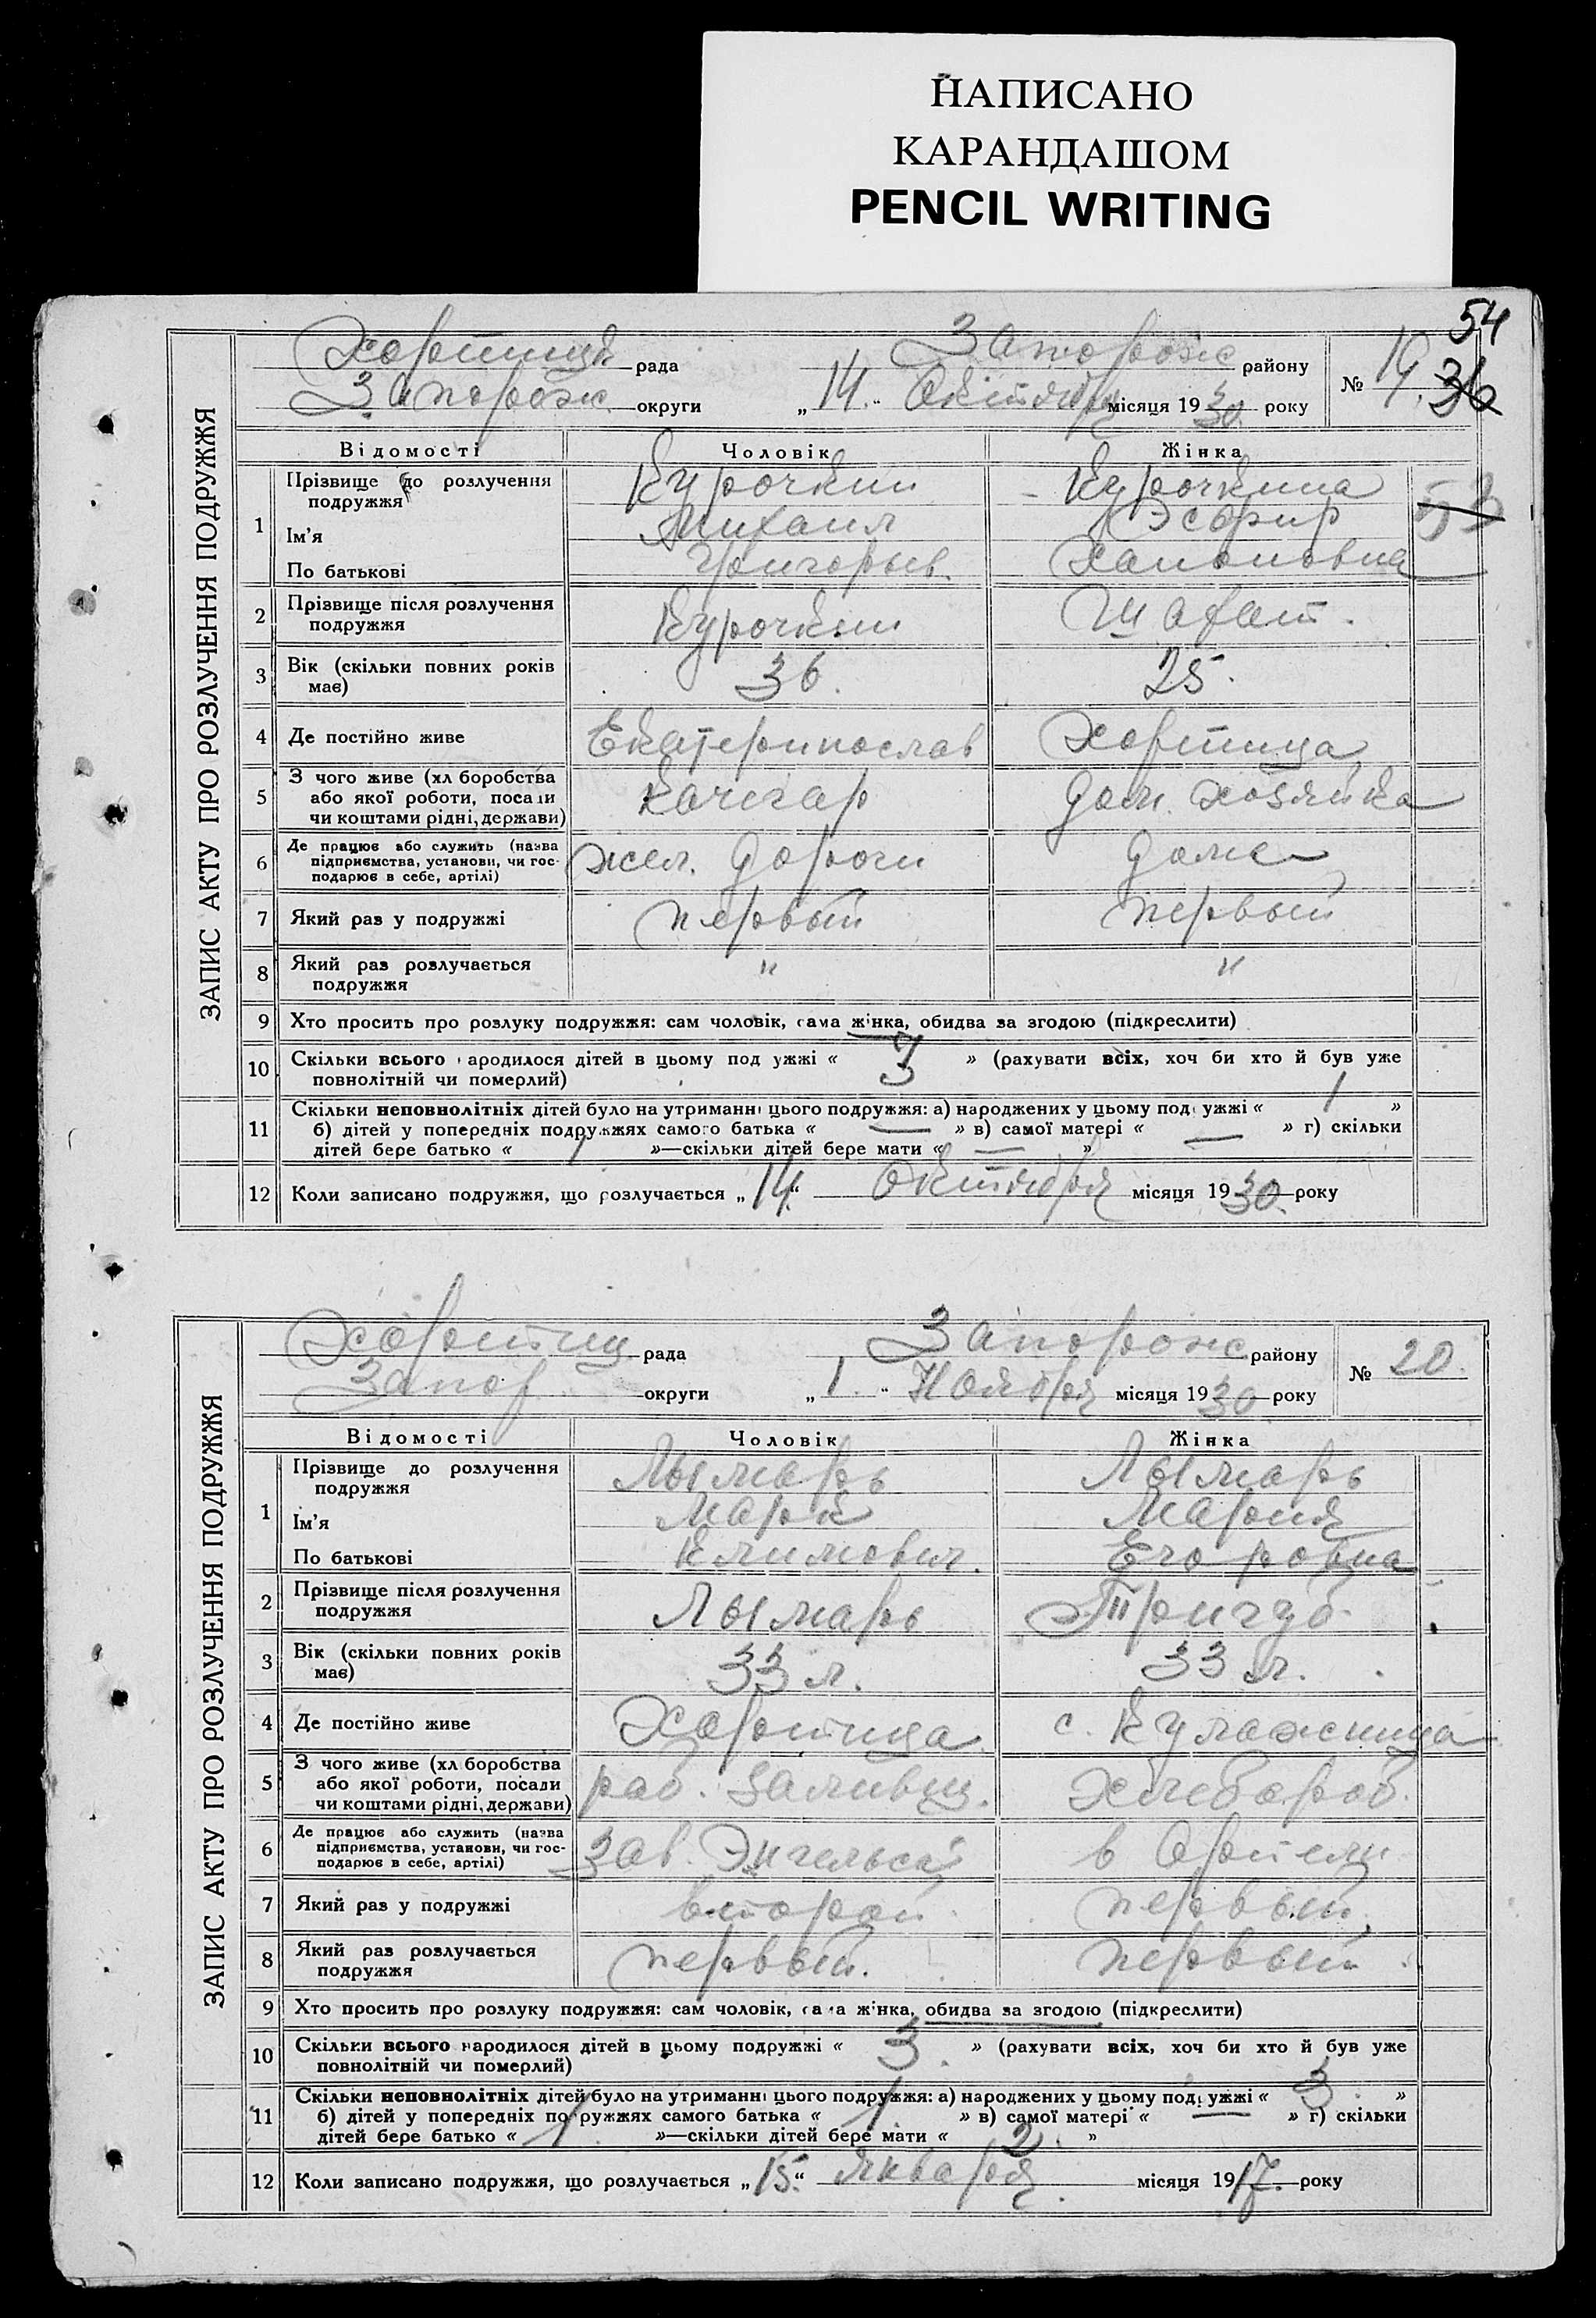 НАПИСАНО
КАРАНДАШОМ
PENCIL WRITING
54
ЗАПИС АКТУ ПРО РОЗЛУЧЕННЯ ПОДРУЖЖЯ
Хортицк рада Запорож району № 19. 36
Запорож. округи „14." Октября місяця 1930 року
Відомості Чоловік Жінка
1 Прізвище до розлучення подружжя Курочкин Курочкина 53
Ім'я Михаил Эсфир
По батькові Григорьев. Хаимовна
2 Прізвище після розлучення
подружжя Курочкин
3 Вік (скільки повних років
має) 36. 25.
4 Де постійно живе Екатеринослав Хортица
5 З чого живе (хліборобства
або якої роботи, посади
чи коштами рідні, держави) Качегар дом. хозяйка
6 Де працює або служить (назва
підприємства, установи, чи гос-
подарює в себе, артілі) жел. дороги дома
7 Який раз у подружжі первый первый
8 Який раз розлучається
подружжя " "
9 Хто просить про розлуку подружжя: сам чоловік, сама жінка, обидва за згодою (підкреслити)
10 Скільки всього народилося дітей в цьому подружжі « 3 » (рахувати всіх, хоч би хто й був уже
повнолітній чи померлий)
11 Скільки неповнолітніх дітей було на утриманні цього подружжя: а) народжених у цьому подружжі « 1 »
б) дітей у попередніх подружжях самого батька « — » в) самої матері « — » г) скільки
дітей бере батько « 1 »—скільки дітей бере мати « — »
12 Коли записано подружжя, що розлучається „14." Октября місяця 1930. року
ЗАПИС АКТУ ПРО РОЗЛУЧЕННЯ ПОДРУЖЖЯ
Хортиц рада Запорож району № 20.
Запор округи „1." Ноября місяця 1930 року
Відомості Чоловік Жінка
1 Прізвище до розлучення
подружжя Лымарь Лымарь
Ім'я Марк Мария
По батькові Климович. Егоровна
2 Прізвище після розлучення
подружжя Лымарь Тригуб.
3 Вік (скільки повних років
має) 33 л. 33 л.
4 Де постійно живе Хортица с.
5 З чого живе (хліборобства
або якої роботи, посади
чи коштами рідні, держави) раб. Заливщ. Хлебороб.
6 Де працює або служить (назва
підприємства, установи, чи гос-
подарює в себе, артілі) Зав. Энгельса в Артели
7 Який раз у подружжі второй первый
8 Який раз розлучається
подружжя первый. первый
9 Хто просить про розлуку подружжя: сам чоловік, сама жінка, обидва за згодою (підкреслити)
10 Скільки всього народилося дітей в цьому подружжі « 3. » (рахувати всіх, хоч би хто й був уже
повнолітній чи померлий)
11 Скільки неповнолітніх дітей було на утриманні цього подружжя: а) народжених у цьому подружжі « 3 »
б) дітей у попередніх подружжях самого батька « 1 » в) самої матері « — » г) скільки
дітей бере батько « 1 »—скільки дітей бере мати « 2. »
12 Коли записано подружжя, що розлучається „15." Января місяця 1917. року